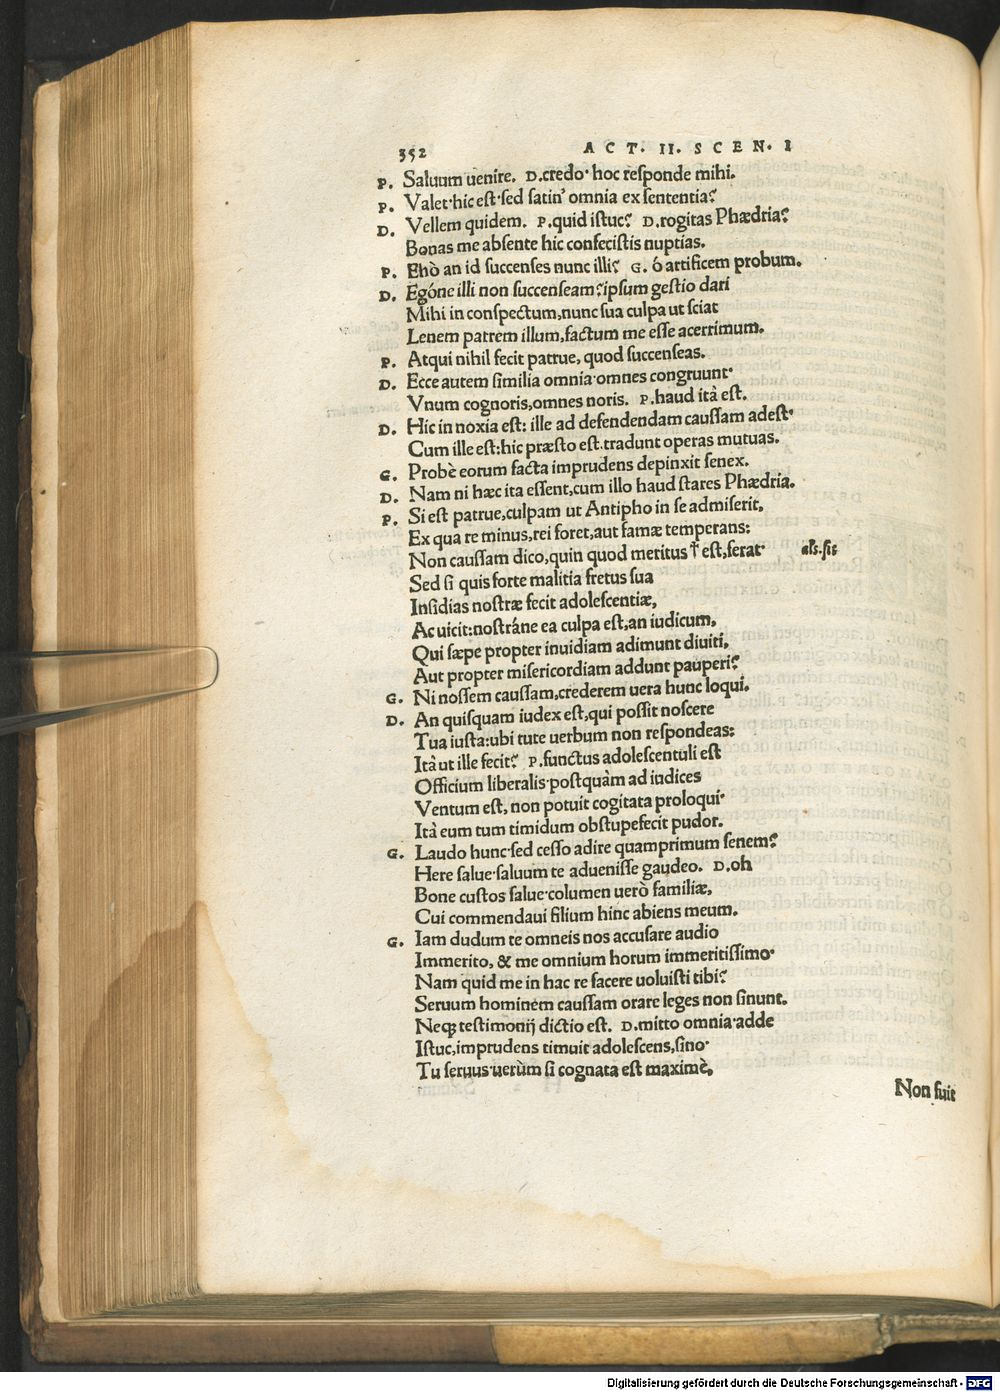 352 ACT. II. SCEN. I
P. Saluum uenire. D.credo· hoc responde mihi.
P. Valet·hic est·sed satin' omnia ex sententia?
D. Vellem quidem. P.quid istuc? D.rogitas Phædria?
Bonas me absente hic confecistis nuptias.
P. Ehò an id succenses nunc illi? G. ó artificem probum.
D. Egóne illi non succenseam?ipsum gestio dari
Mihi in conspectum,nunc sua culpa ut sciat
Lenem patrem illum,factum me esse acerrimum.
P. Atqui nihil fecit patrue, quod succenseas.
D. Ecce autem similia omnia·omnes congruunt·
Vnum cognoris,omnes noris. P.haud ità est.
D. Hic in noxia est: ille ad defendendam caussam adest·
Cum ille est:hic præsto est.tradunt operas mutuas.
G. Probè eorum facta imprudens depinxit senex.
D. Nam ni hæc ita essent,cum illo haud stares Phædria.
P. Si est patrue,culpam ut Antipho in se admiserit,
Ex qua re minus,rei foret,aut famæ temperans:
Non caussam dico,quin quod meritus † est,ferat· als.sit
Sed si quis forte malitia fretus sua
Insidias nostræ fecit adolescentiæ,
Ac uicit:nostráne ea culpa est,an iudicum,
Qui sæpe propter inuidiam adimunt diuiti,
Aut propter misericordiam addunt pauperi?
G. Ni nossem caussam,crederem uera hunc loqui.
D. An quisquam iudex est,qui possit noscere
Tua iusta:ubi tute uerbum non respondeas:
Ità ut ille fecit? P.functus adolescentuli est
Officium liberalis·postquàm ad iudices
Ventum est, non potuit cogitata proloqui·
Ità eum tum timidum obstupefecit pudor.
G. Laudo hunc·sed cesso adire quamprimum senem?
Here salue·saluum te aduenisse gaudeo. D.oh
Bone custos salue·columen uerò familiæ,
Cui commendaui filium hinc abiens meum.
G. Iam dudum te omneis nos accusare audio
Immerito, & me omnium horum immeritissimo·
Nam quid me in hac re facere uoluisti tibi?
Seruum hominem caussam orare leges non sinunt.
Neqꝫ testimonij dictio est. D.mitto omnia·adde
Istuc,imprudens timuit adolescens,sino·
Tu seruus·uerùm si cognata est maximè,
Non fuit
Digitalisierung gefördert durch die Deutsche Forschungsgemeinschaft - DFG